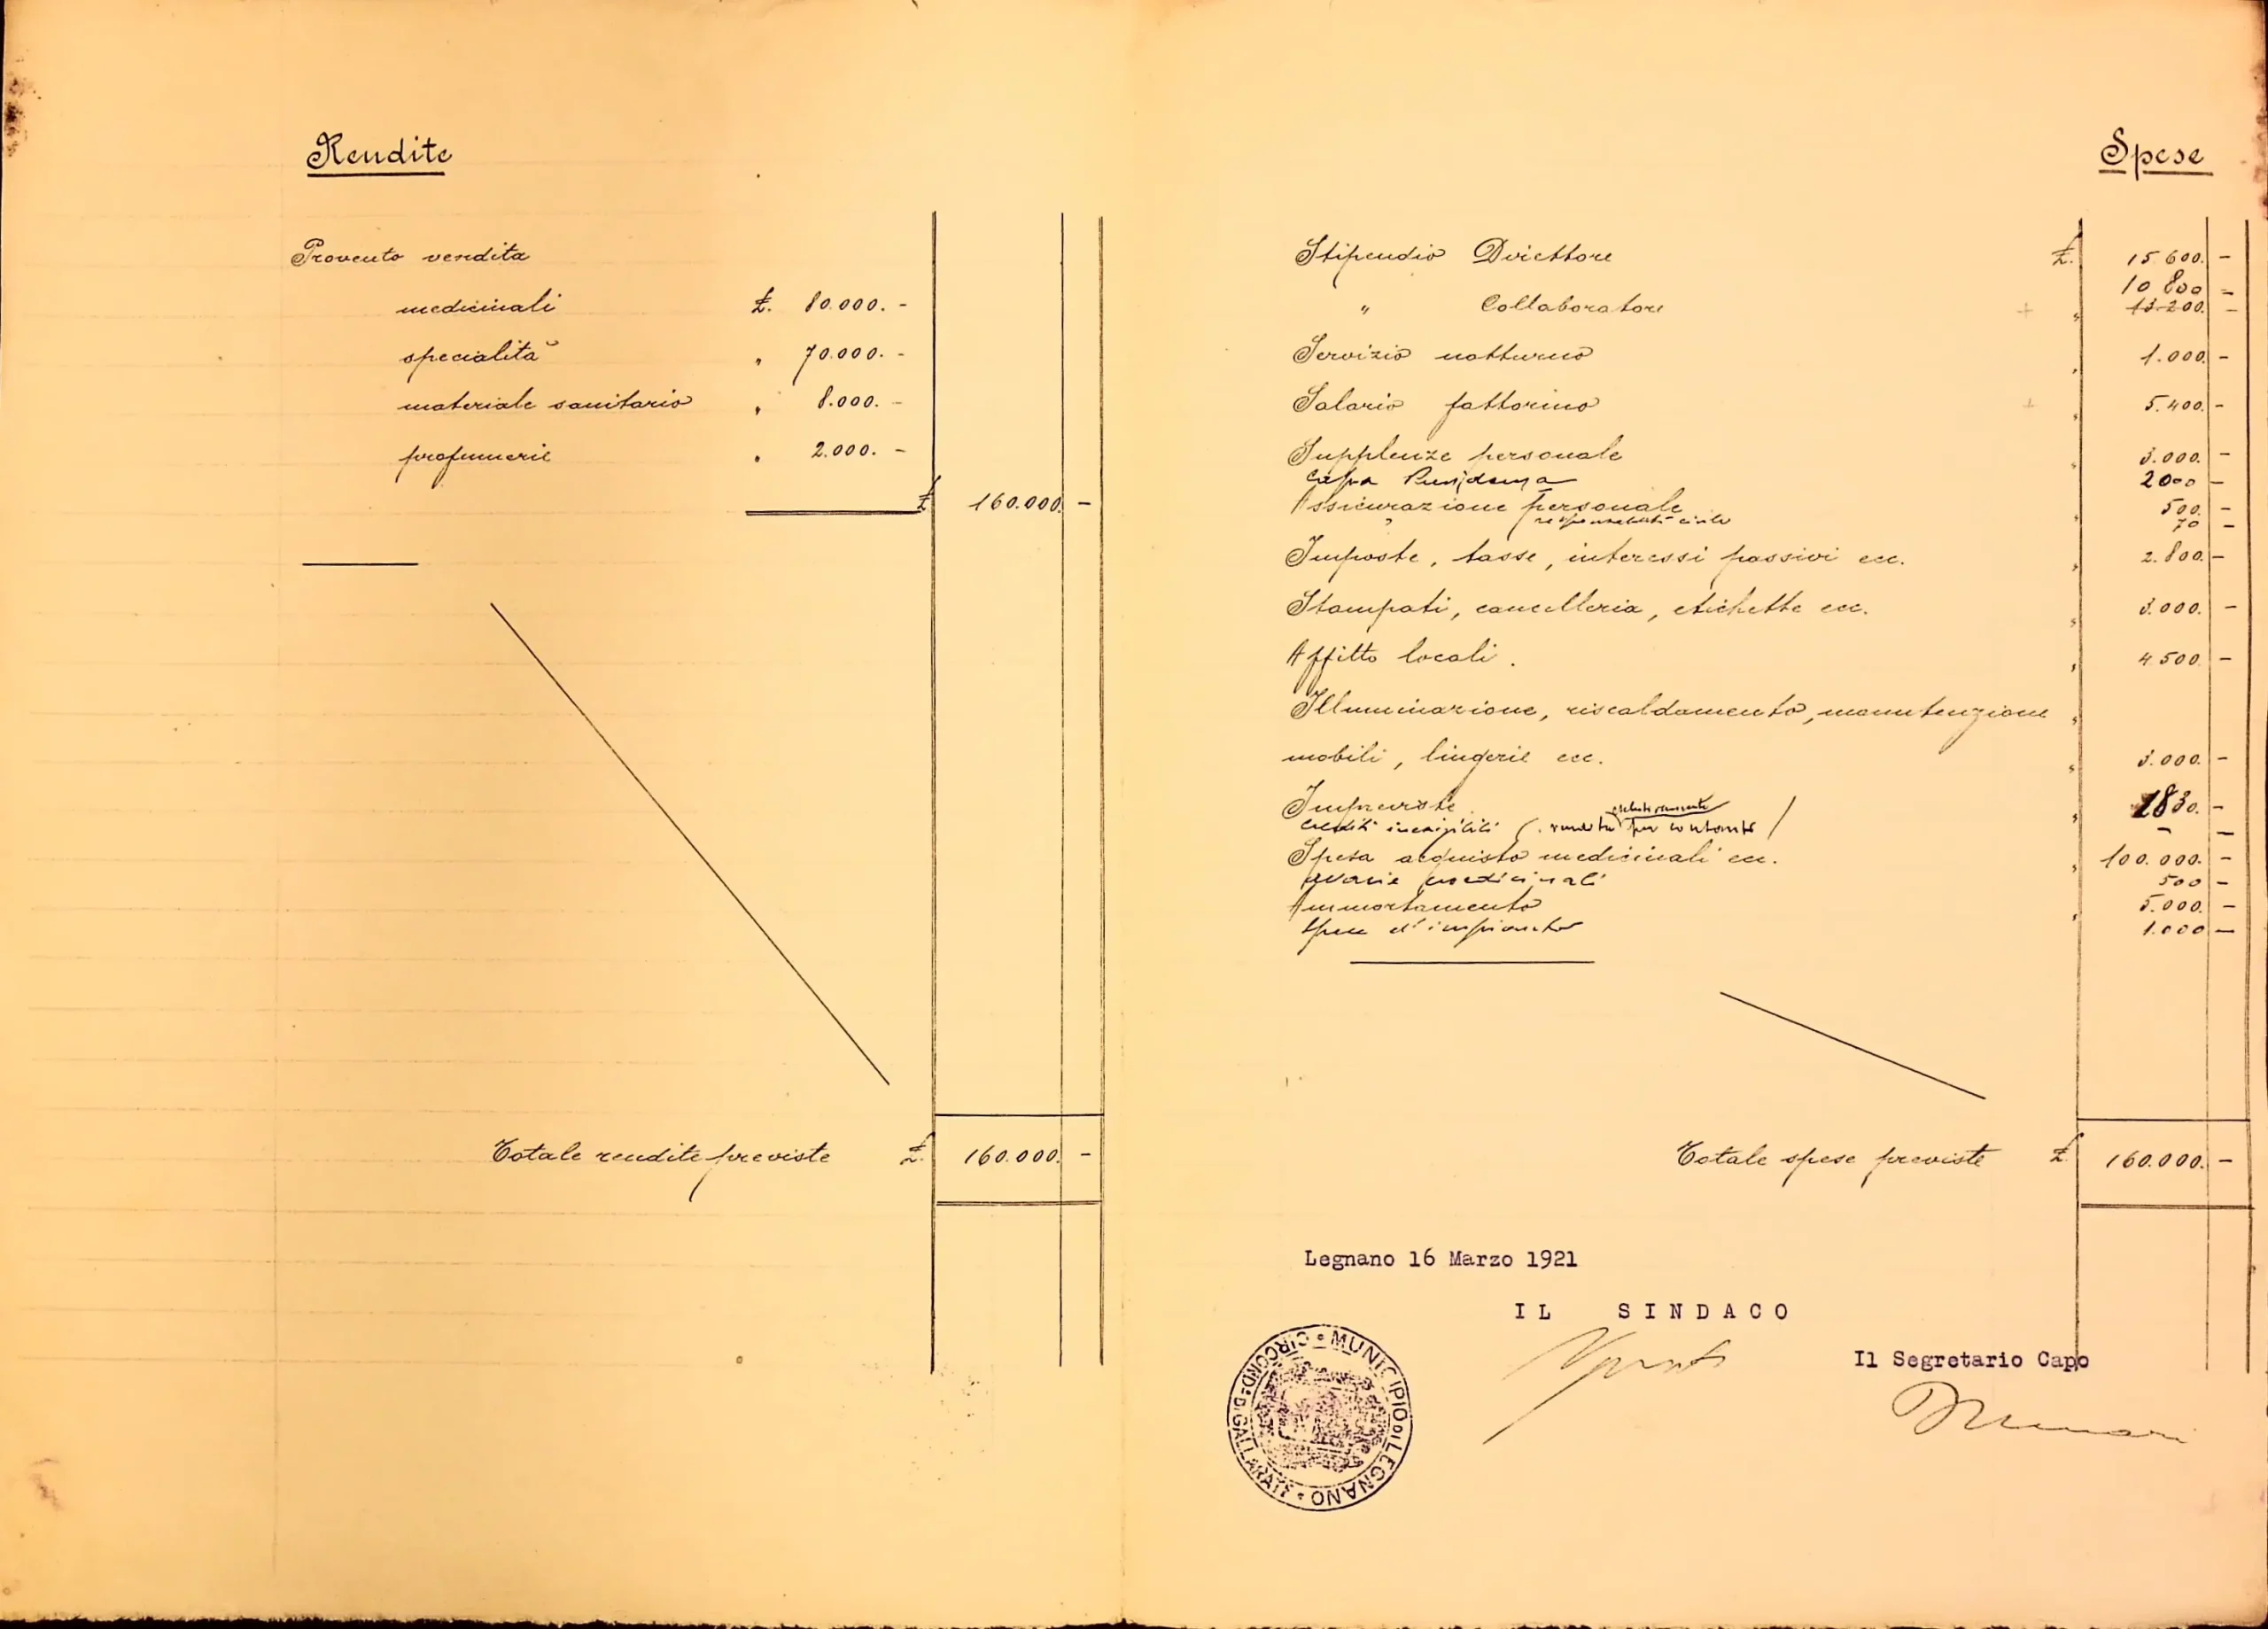 Rendite
Provento vendita
medicinali £. 80.000. -
specialità " 70.000. -
materiale sanitario " 8.000. -
profumerie " 2.000. -
£ 160.000. -
Totale rendite previste £. 160.000. -
Spese
Stipendio Direttore £. 15600. -
10 800 -
" Collaboratore " 13.200. -
Servizio notturno " 1.000. -
Salario fattorino " 5.400. -
Supplenze personale " 3.000. -
Cassa 2000 -
Assicurazione personale " 500. -
" responsabilità civile 70 -
Imposte, tasse, interessi passivi ecc. " 2.800. -
Stampati, cancelleria, etichette ecc. " 3.000. -
Affitto locali. " 4.500. -
Illuminazione, riscaldamento, manutenzione "
mobili, lingerie ecc. " 3.000. -
Impreviste " 1830. -
esclusivamente
Crediti inesigibili (vendita per contanti) - -
Spesa acquisto medicinali ecc. " 100.000. -
medicinali 500 -
Ammortamento " 5.000. -
Spese d'impianto 1.000 -
Totale spese previste £. 160.000. -
Legnano 16 Marzo 1921
IL SINDACO
Il Segretario Capo
MUNICIPIO DI LEGNANO • CIRCOND. DI GALLARATE •